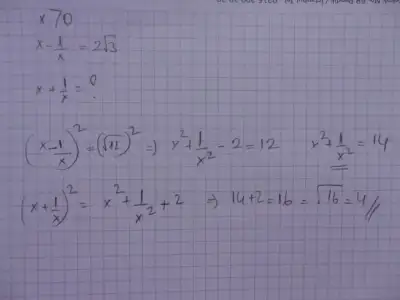 x 70
x - 1/x = 2√3
x + 1/x = ?
(x - 1/x)² = (√12)² ⇒ x² + 1/x² - 2 = 12 x² + 1/x² = 14
(x + 1/x)² = x² + 1/x² + 2 ⇒ 14 + 2 = 16 = √16 = 4 //